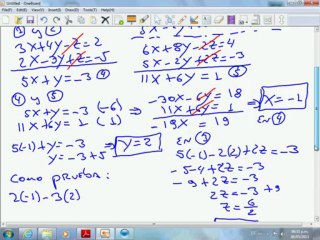 Untitled - OneBoard
③ y ②
3x+4y-z=2
2x-3y+z=-5
5x+y=-3 ④
6x+8y-2z=4
5x-2y+2z=-3
11x+6y=1 ⑤
④ y ⑤
5x+y=-3 (-6)
11x+6y=1 (1)
-30x-6y=18
11x+6y=1
-19x=19
x=-1
5(-1)+y=-3
y=-3+5
y=2
EN ④
EN ①
5(-1)-2(2)+2z=-3
-5-4+2z=-3
-9+2z=-3
2z=-3+9
z=6/2
Como prueba:
2(-1)-3(2)